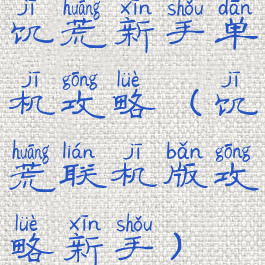 jī huāng xīn shǒu dān
饥荒新手单
jī gōng lüè jī
机攻略（饥
huāng lián jī bǎn gōng
荒联机版攻
lüè xīn shǒu
略新手）